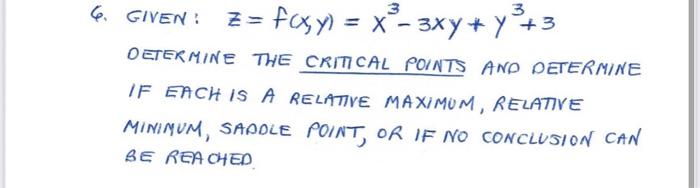 6. GIVEN: z = f(x,y) = x³ - 3xy + y³ + 3
DETERMINE THE CRITICAL POINTS AND DETERMINE
IF EACH IS A RELATIVE MAXIMUM, RELATIVE
MINIMUM, SADDLE POINT, OR IF NO CONCLUSION CAN
BE REACHED.